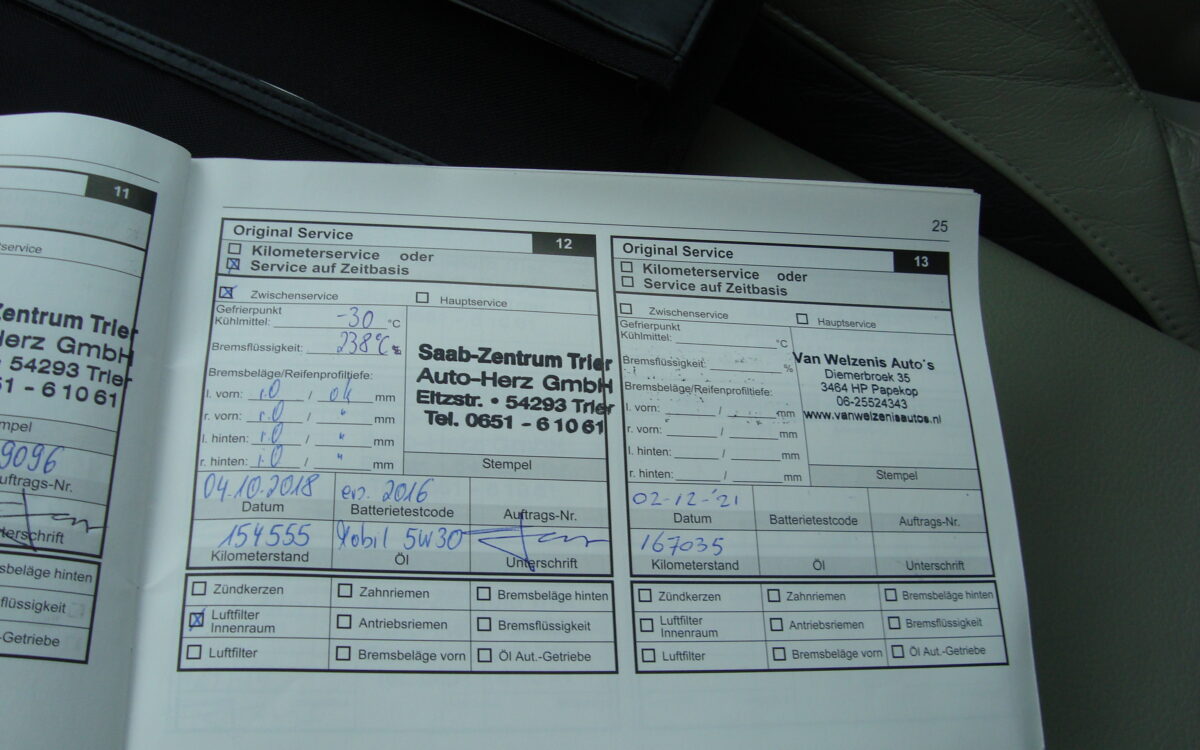 11
service
Zentrum Trier
Herz GmbH
54293 Trier
51 - 6 10 61
mpel
9096
uftrags-Nr.
terschrift
sbeläge hinten
flüssigkeit
-Getriebe
25
Original Service 12
Kilometerservice oder
Service auf Zeitbasis
Zwischenservice Hauptservice
Gefrierpunkt
Kühlmittel: -30 °C
Bremsflüssigkeit: 238°C %
Bremsbeläge/Reifenprofiltiefe:
l. vorn: / ok mm
r. vorn: / " mm
l. hinten: / " mm
r. hinten: / " mm
Saab-Zentrum Trier
Auto-Herz GmbH
Eltzstr. • 54293 Trier
Tel. 0651 - 6 10 61
Stempel
04.10.2018 2016
Datum Batterietestcode Auftrags-Nr.
154555 Mobil 5W30
Kilometerstand Öl Unterschrift
Zündkerzen Zahnriemen Bremsbeläge hinten
Luftfilter
Innenraum Antriebsriemen Bremsflüssigkeit
Luftfilter Bremsbeläge vorn Öl Aut.-Getriebe
Original Service 13
Kilometerservice oder
Service auf Zeitbasis
Zwischenservice Hauptservice
Gefrierpunkt
Kühlmittel: °C
Bremsflüssigkeit: %
Bremsbeläge/Reifenprofiltiefe:
l. vorn: / mm
r. vorn: / mm
l. hinten: / mm
r. hinten: / mm
Van Welzenis Auto's
Diemerbroek 35
3464 HP Papekop
06-25524343
www.vanwelzenisautos.nl
Stempel
02-12-'21
Datum Batterietestcode Auftrags-Nr.
167035
Kilometerstand Öl Unterschrift
Zündkerzen Zahnriemen Bremsbeläge hinten
Luftfilter
Innenraum Antriebsriemen Bremsflüssigkeit
Luftfilter Bremsbeläge vorn Öl Aut.-Getriebe